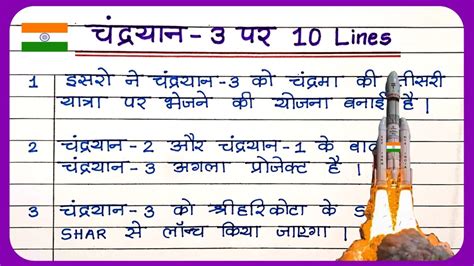 चंद्रयान-3 पर 10 Lines
1 इसरो ने चंद्रयान-3 को चंद्रमा की तीसरी
यात्रा पर भेजने की योजना बनाई है।
2 चंद्रयान-2 और चंद्रयान-1 के बाद
चंद्रयान-3 अगला प्रोजेक्ट है।
3 चंद्रयान-3 को श्रीहरिकोटा के
SHAR से लॉन्च किया जाएगा।